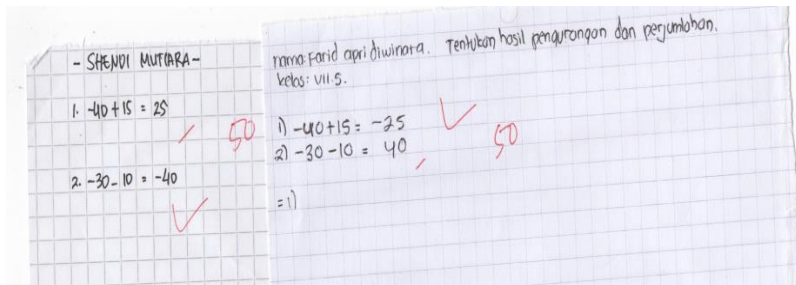 - SHENDI MUTIARA -
1. -40 + 15 = 25
50
2. -30 - 10 = -40
nama: Farid apri diwinara. Tentukan hasil pengurongan dan perjumlahan.
kelas: VII.5.
1) -40 + 15 = -25
2) -30 - 10 = 40
50
=1)